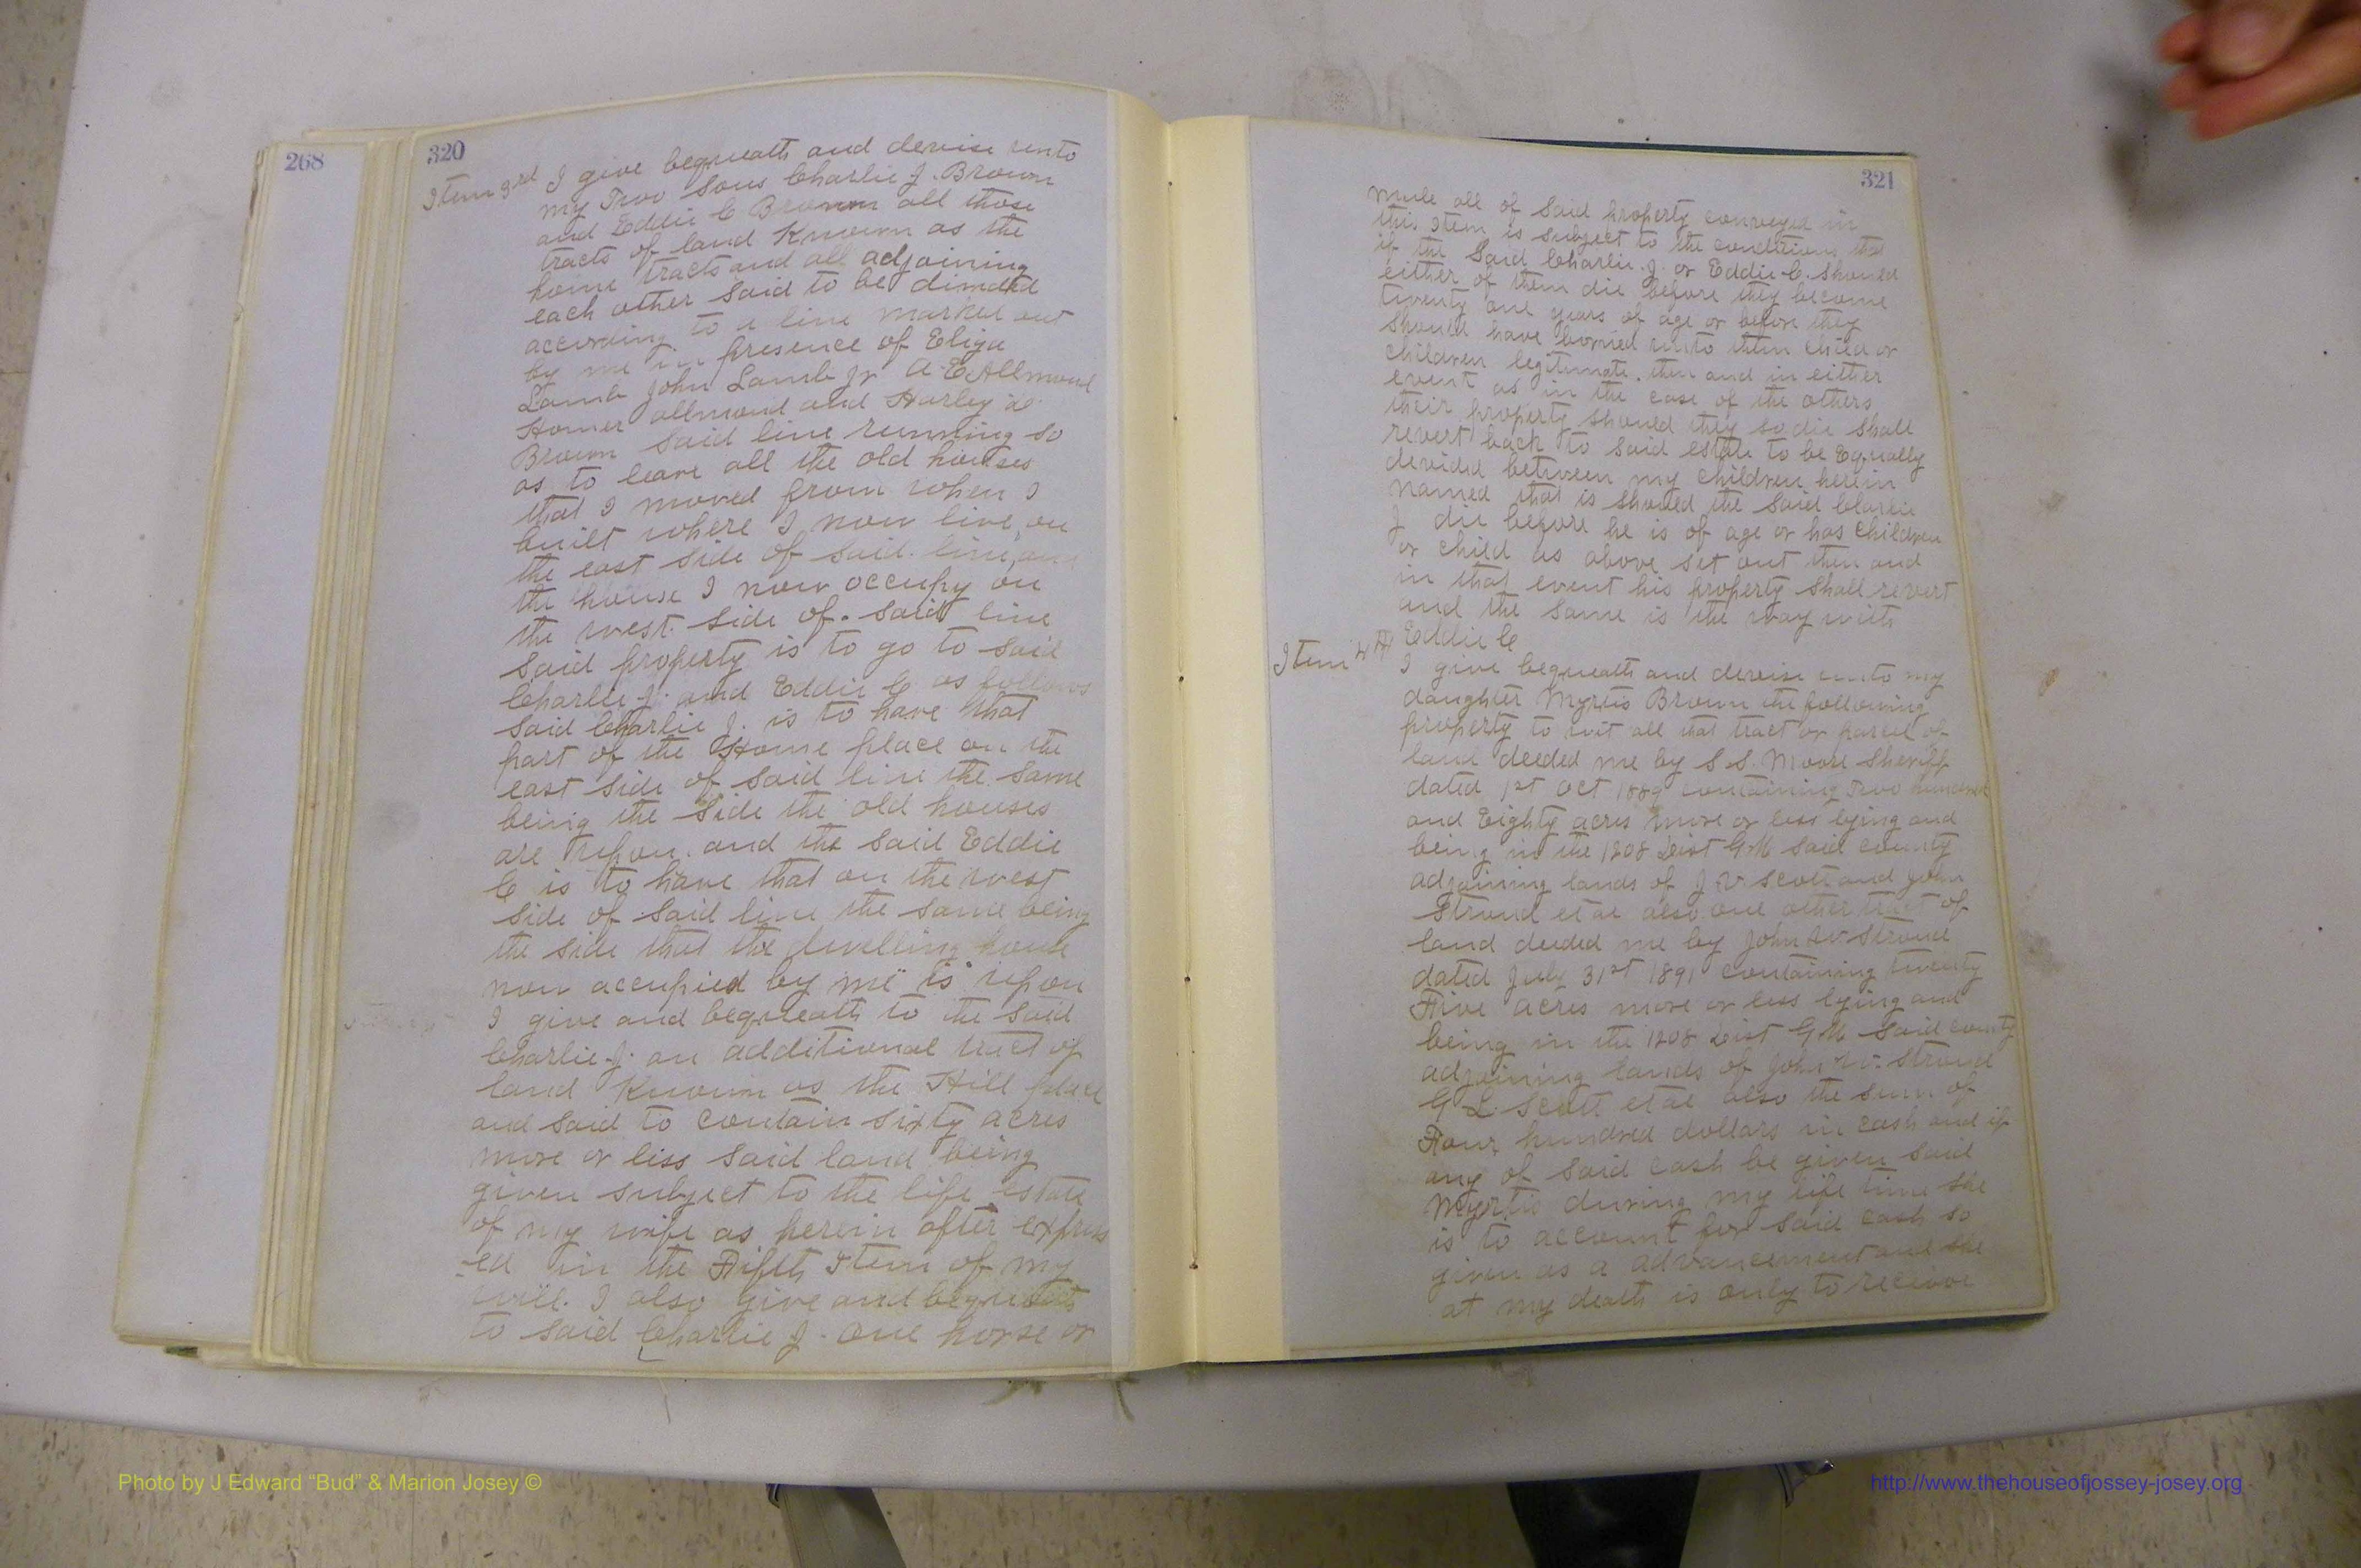 268
320
Item 3rd I give bequeath and devise unto
my Two Sons Charlie J. Brown
and Eddie C Brown all those
tracts of land Known as the
home tracts and all adjoining
each other said to be divided
according to a line marked out
by me in presence of Eliga
Lamb John Lamb Jr A. E Allmond
Homer allmond and Harley
Brown said line running so
as to leave all the old houses
that I moved from when I
built where I now live, on
the east side of said line, and
the house I now occupy on
the west side of said line
said property is to go to said
Charlie J. and Eddie C as follows
said Charlie J. is to have that
part of the Home place on the
east side of said line the same
being the side the old houses
are upon. and the said Eddie
C is to have that on the west
side of said line the same being
the side that the dwelling house
now accupied by me is upon
I give and bequeath to the said
Charlie J. an additional tract of
land Known as the Hill place
and said to contain sixty acres
more or less said land being
given subject to the life estate
of my wife as herein after express
-ed in the Fifth Item of my
will. I also give and bequeath
to said Charlie J. one horse or
321
mule all of said property conveyed in
this Item is subject to the conditions that
if the said Charlie J. or Eddie C. should
either of them die before they become
twenty one years of age or before they
should have borned unto them child or
children legitimate. then and in either
event as in the case of the others
their property should they so die shall
revert back to said estate to be Equally
devided between my children herein
named that is should the said Charlie
J die before he is of age or has children
or child as above set out then and
in that event his property shall revert
and the same is the way with
Eddie C
Item 4th I give bequeath and devise unto my
daughter Myrtis Brown the following
property to wit all that tract or parcel of
land deeded me by S S. Moore Sheriff
dated 1st Oct 1889 containing Two hundred
and Eighty acres more or less lying and
being in the 1208 Dist G M said county
adjoining lands of J V Scott and John
Stroud et al also one other tract of
land deeded me by John W. Stroud
dated July 31st 1891 containing twenty
Five acres more or less lying and
being in the 1208 Dist G M said county
adjoining lands of John W. Stroud
G L. Scott et al also the sum of
Four hundred dollars in cash and if
any of said cash be given said
Myrtis during my life time she
is to account for said cash so
given as a advancement and she
at my death is only to receive
Photo by J Edward “Bud” & Marion Josey ©
http://www.thehouseofjossey-josey.org